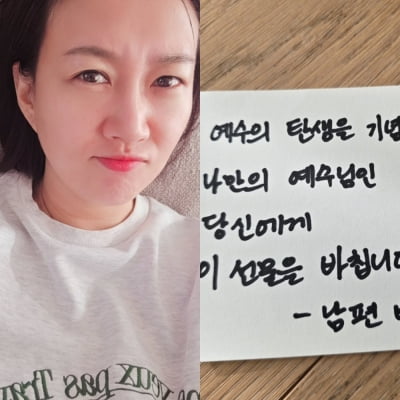 예수의 탄생을 기념
나만의 예수님인
당신에게
이 선물을 바칩니다
- 남편